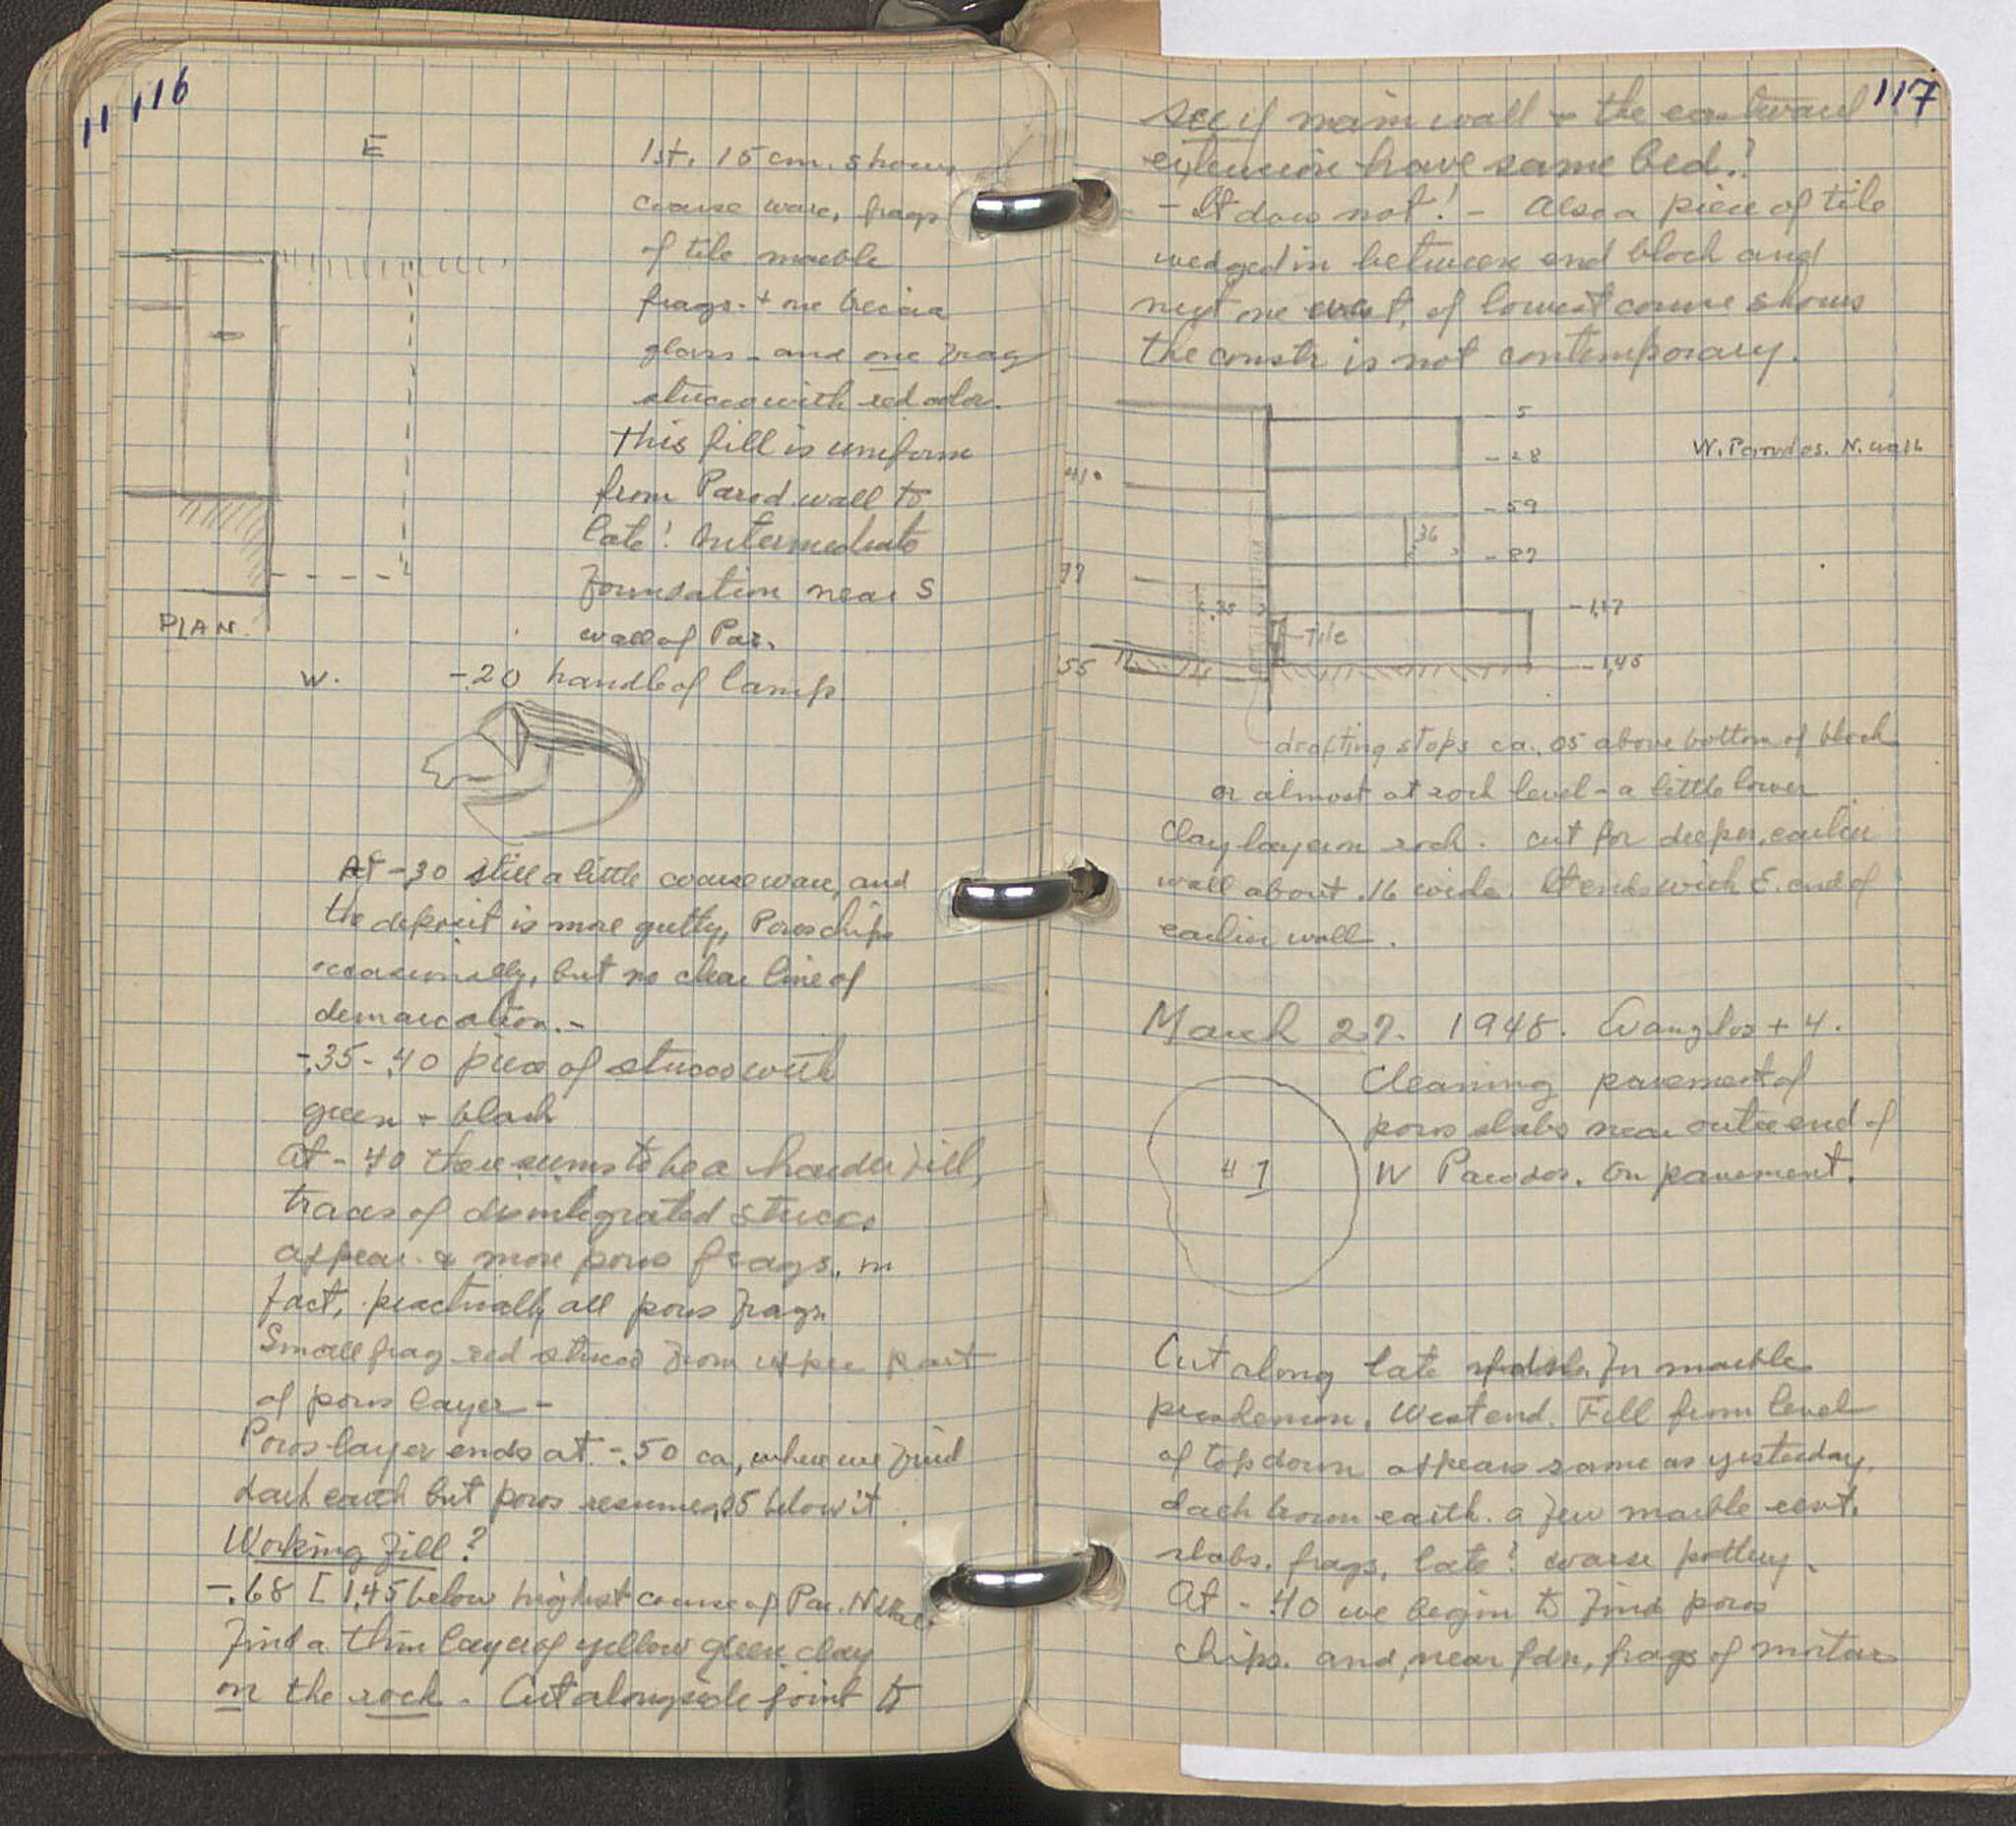 116
E
1st. 15 cm. shows
coarse ware, frags
of tile marble
frags. + one
glass - and one frag
stucco with red color.
This fill is uniform
from Parod. wall to
late? Intermediate
foundation near S
wall of Par.
PLAN.
W.
-.20 handle of lamp.
At -.30 still a little coarse ware, and
the deposit is more gutty, Poros chips
occasionally, but no clear line of
demarcation.-
-.35-.40 piece of stucco with
green + black
At -.40 there seems to be a harder fill,
traces of disintegrated stucco
appear & more poros frags. in
fact, practically all poros frags.
Small frag red stucco from upper part
of poros layer -
Poros layer ends at -.50 ca, where we find
dark earth but poros resumes .05 below it
Working fill?
-.68 [1.45 below highest course of Par. N wall.
Find a thin layer of yellow green clay
on the rock. Cut alongside joint to
117
see if main wall + the eastward
extension have same bed.?
- It does not! - Also a piece of tile
wedged in between end block and
next one east, of lowest course shows
the constr is not contemporary.
- 5
W. Parodos. N. wall
- 28
41
- 59
.36
- 87
77
- 1.17
.35
Tile
55
- 1.45
drafting stops ca. .05 above bottom of block
or almost at rock level - a little lower
Clay layer on rock. cut for deeper, earlier
wall about .16 wide. It ends with E. end of
earlier wall.
March 27. 1948. Evanglos + 4.
Cleaning pavement of
poros slabs near outer end of
#1
W Parodos. On pavement.
Cut along late fdn. for marble
proskenion, West end. Fill from level
of top down appears same as yesterday,
dark brown earth. a few marble
slabs. frags, late? coarse pottery.
At -.40 we begin to find poros
chips. and, near fdn, frags of mortar